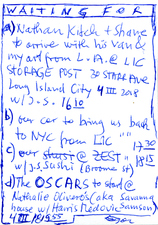 WAITING FOR
a) Nathan Kitch + Shane
to arrive with his van &
my art from L.A. @ LIC
STORAGE POST 30 STARR AVE
Long Island City 4 III 2018
w/ J.S. 1610
b) our car to bring us back
to NYC from LIC 1730
c) our @ ZEST 1815
w/ J.S. Sushi (Broome St)
d) The OSCARS to start @
Nathalie (aka Savannah
house w/ Harris
4 III 18 1855